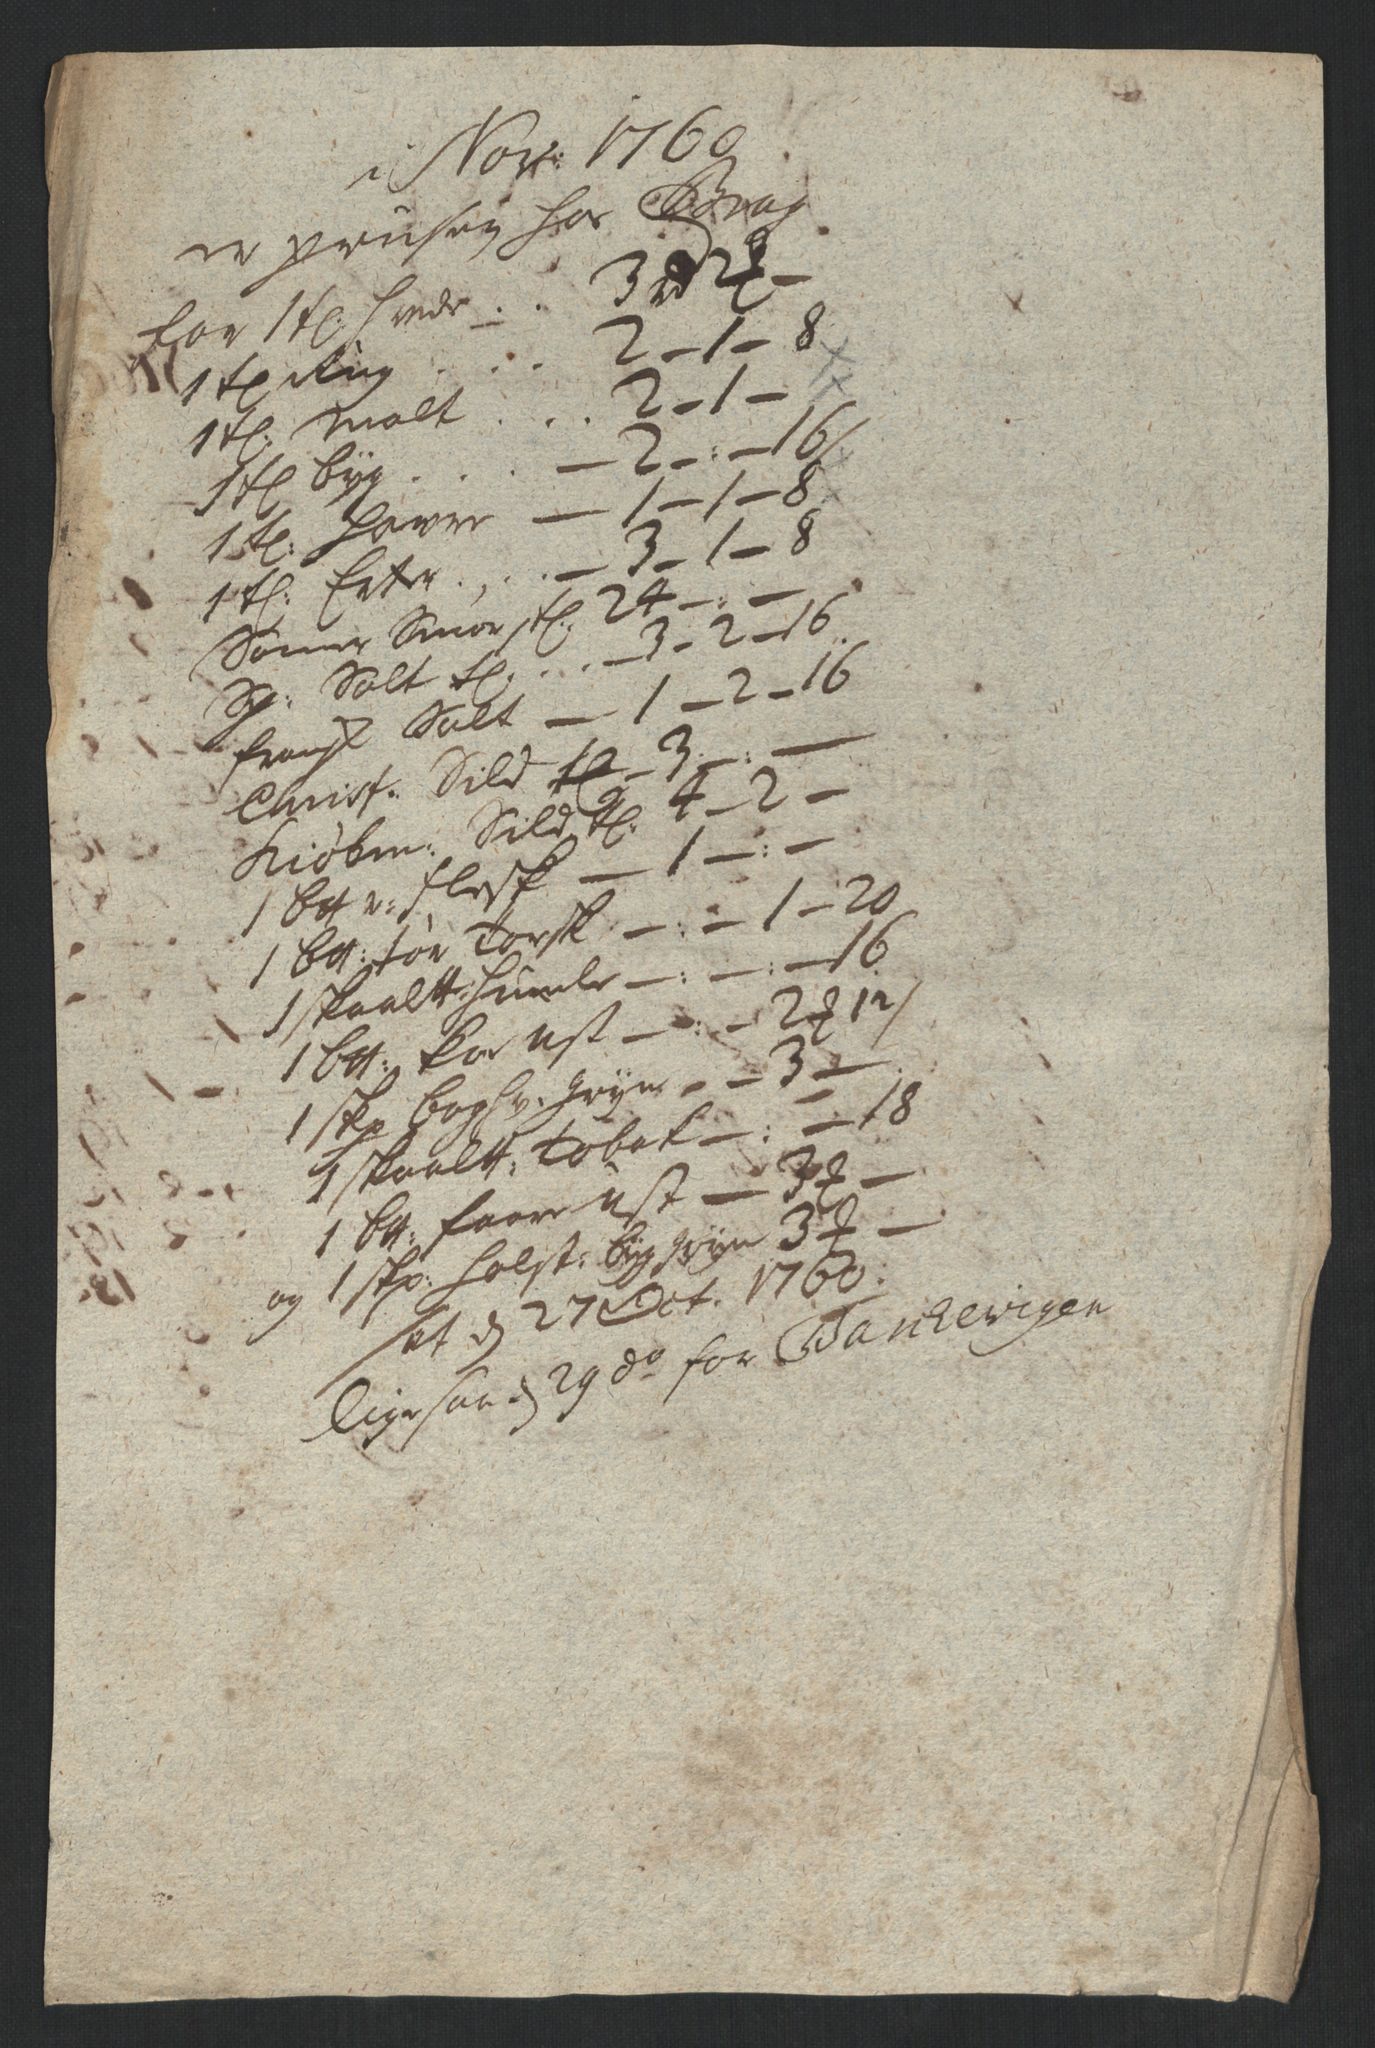 i Nov: 1760
er prisen her Brag
for 1 td: hvede . . 3 rd 2 ꝗ —
1 td Rüg . . . 2 – 1 – 8
1 td: malt . . . 2 – 1 –
1 td byg . . . — 2 – : – 16/
1 td: Havre — 1 – 1 – 8
1 td: Erter . . . – 3 – 1 – 8
Somer Smør td: 24 – : –
Sp: Salt td. . . . – 3 – 2 – 16.
fransk Salt — 1 – 2 – 16
Christ. Sild td – 3 – : —
Kiöbm: Sild td: 4 – 2 –
1 btt r: flesk — 1 – : –
1 btt: tør Torsk – : – 1 – 20
1 skaaltt: Humle – : – : – 16
1 btt: koe ust – : – 2 ꝗ 12/
1 skp bogh: gryn – – 3 – .
1 skaaltt: Tobak – : – 18
1 btt: faare ust — 3 ꝗ –
og 1 skp: holst: byggryn 3 ꝗ –
sat d 27 Oct. 1760:
ligesaa d 29 do for